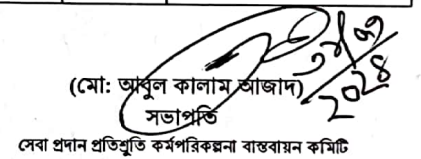 (মো: আবুল কালাম আজাদ)
সভাপতি
সেবা প্রদান প্রতিশ্রুতি কর্মপরিকল্পনা বাস্তবায়ন কমিটি